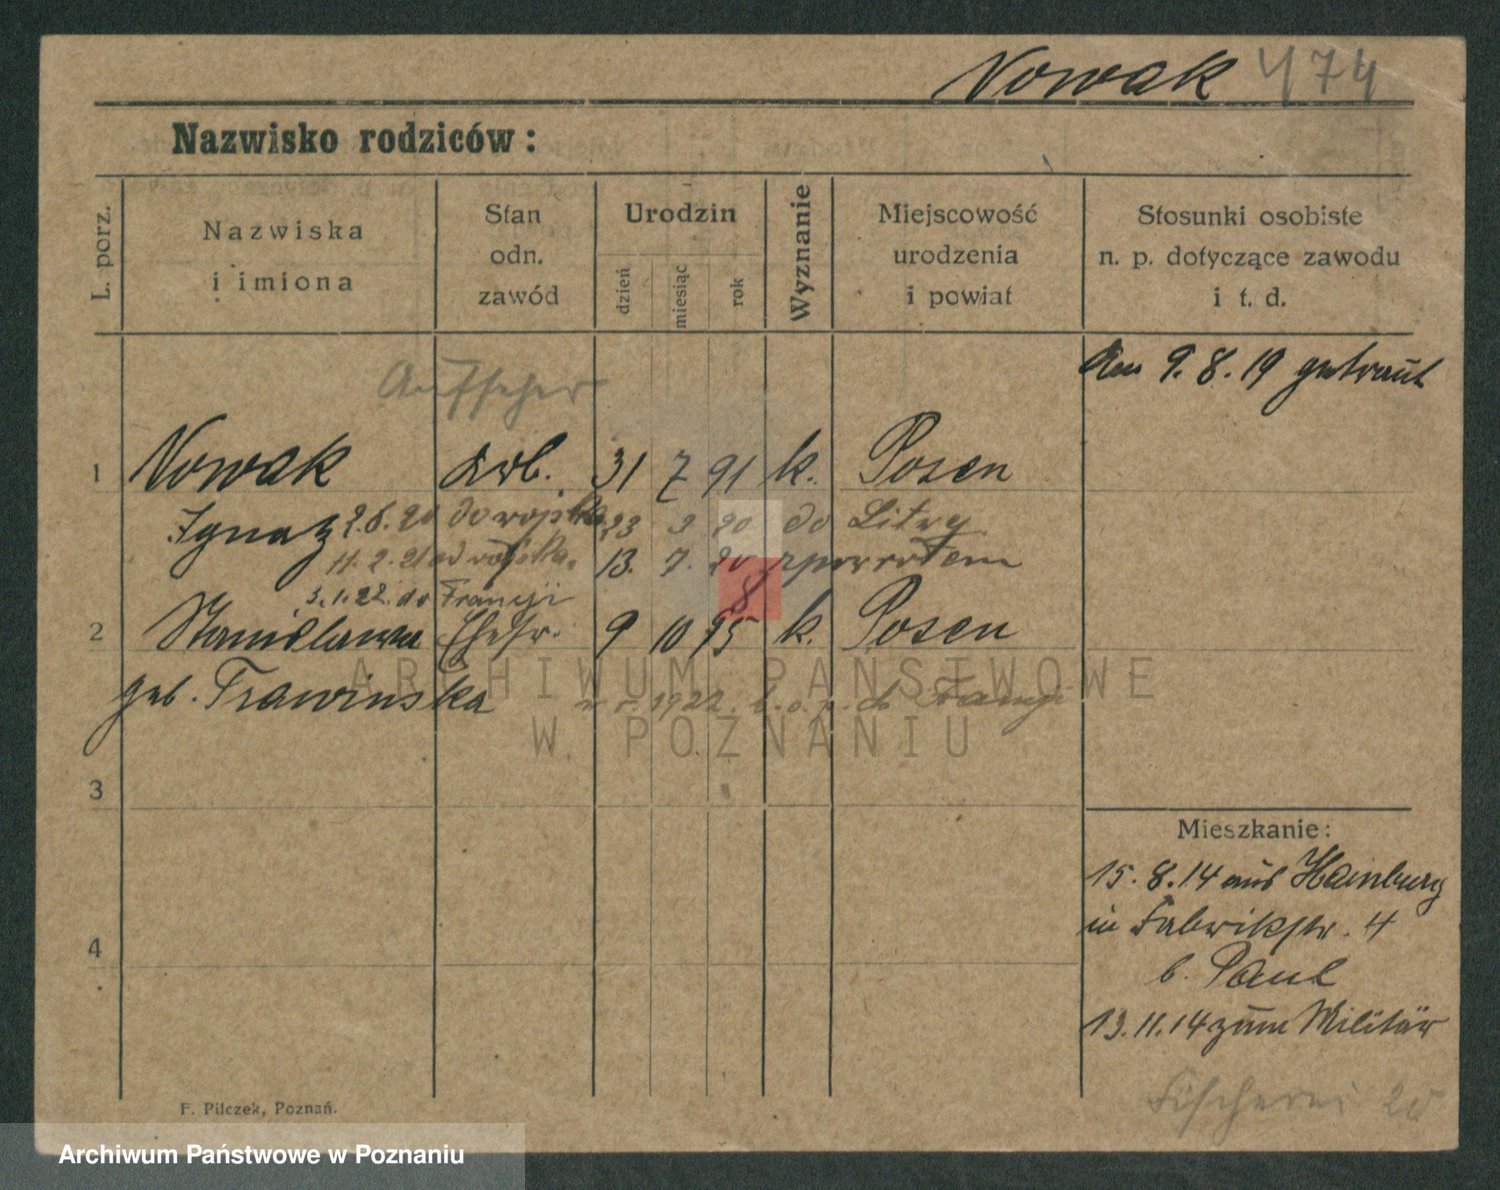 Nowak 474
Nazwisko rodziców:
L. porz.
Nazwiska
i imiona
Stan
odn.
zawód
Urodzin
dzień
miesiąc
rok
Wyznanie
Miejscowość
urodzenia
i powiat
Stosunki osobiste
n. p. dotyczące zawodu
i t. d.
Am 9. 8. 19 getraut
Aufseher
1 Nowak Arb. 31 7 91 k. Posen
Ignatz 2.6.20 do wojska 23 9 20 do Litwy
11. 2. 21 od wojska. 13. 7. 20 zpowrotem
3. 1. 22. do Francji
8
2 Stanislawa Ehefr. 9 10 95 k. Posen
geb. Trawinska
w r. 1922. b. o. p. do Francji
3
4
Mieszkanie:
15. 8. 14 aus Hamburg
in Fabrikstr. 4
b. Paul
13. 11. 14 zum Militär
Fischerei 20
F. Pilczek, Poznań.
ARCHIWUM PAŃSTWOWE
W POZNANIU
Archiwum Państwowe w Poznaniu